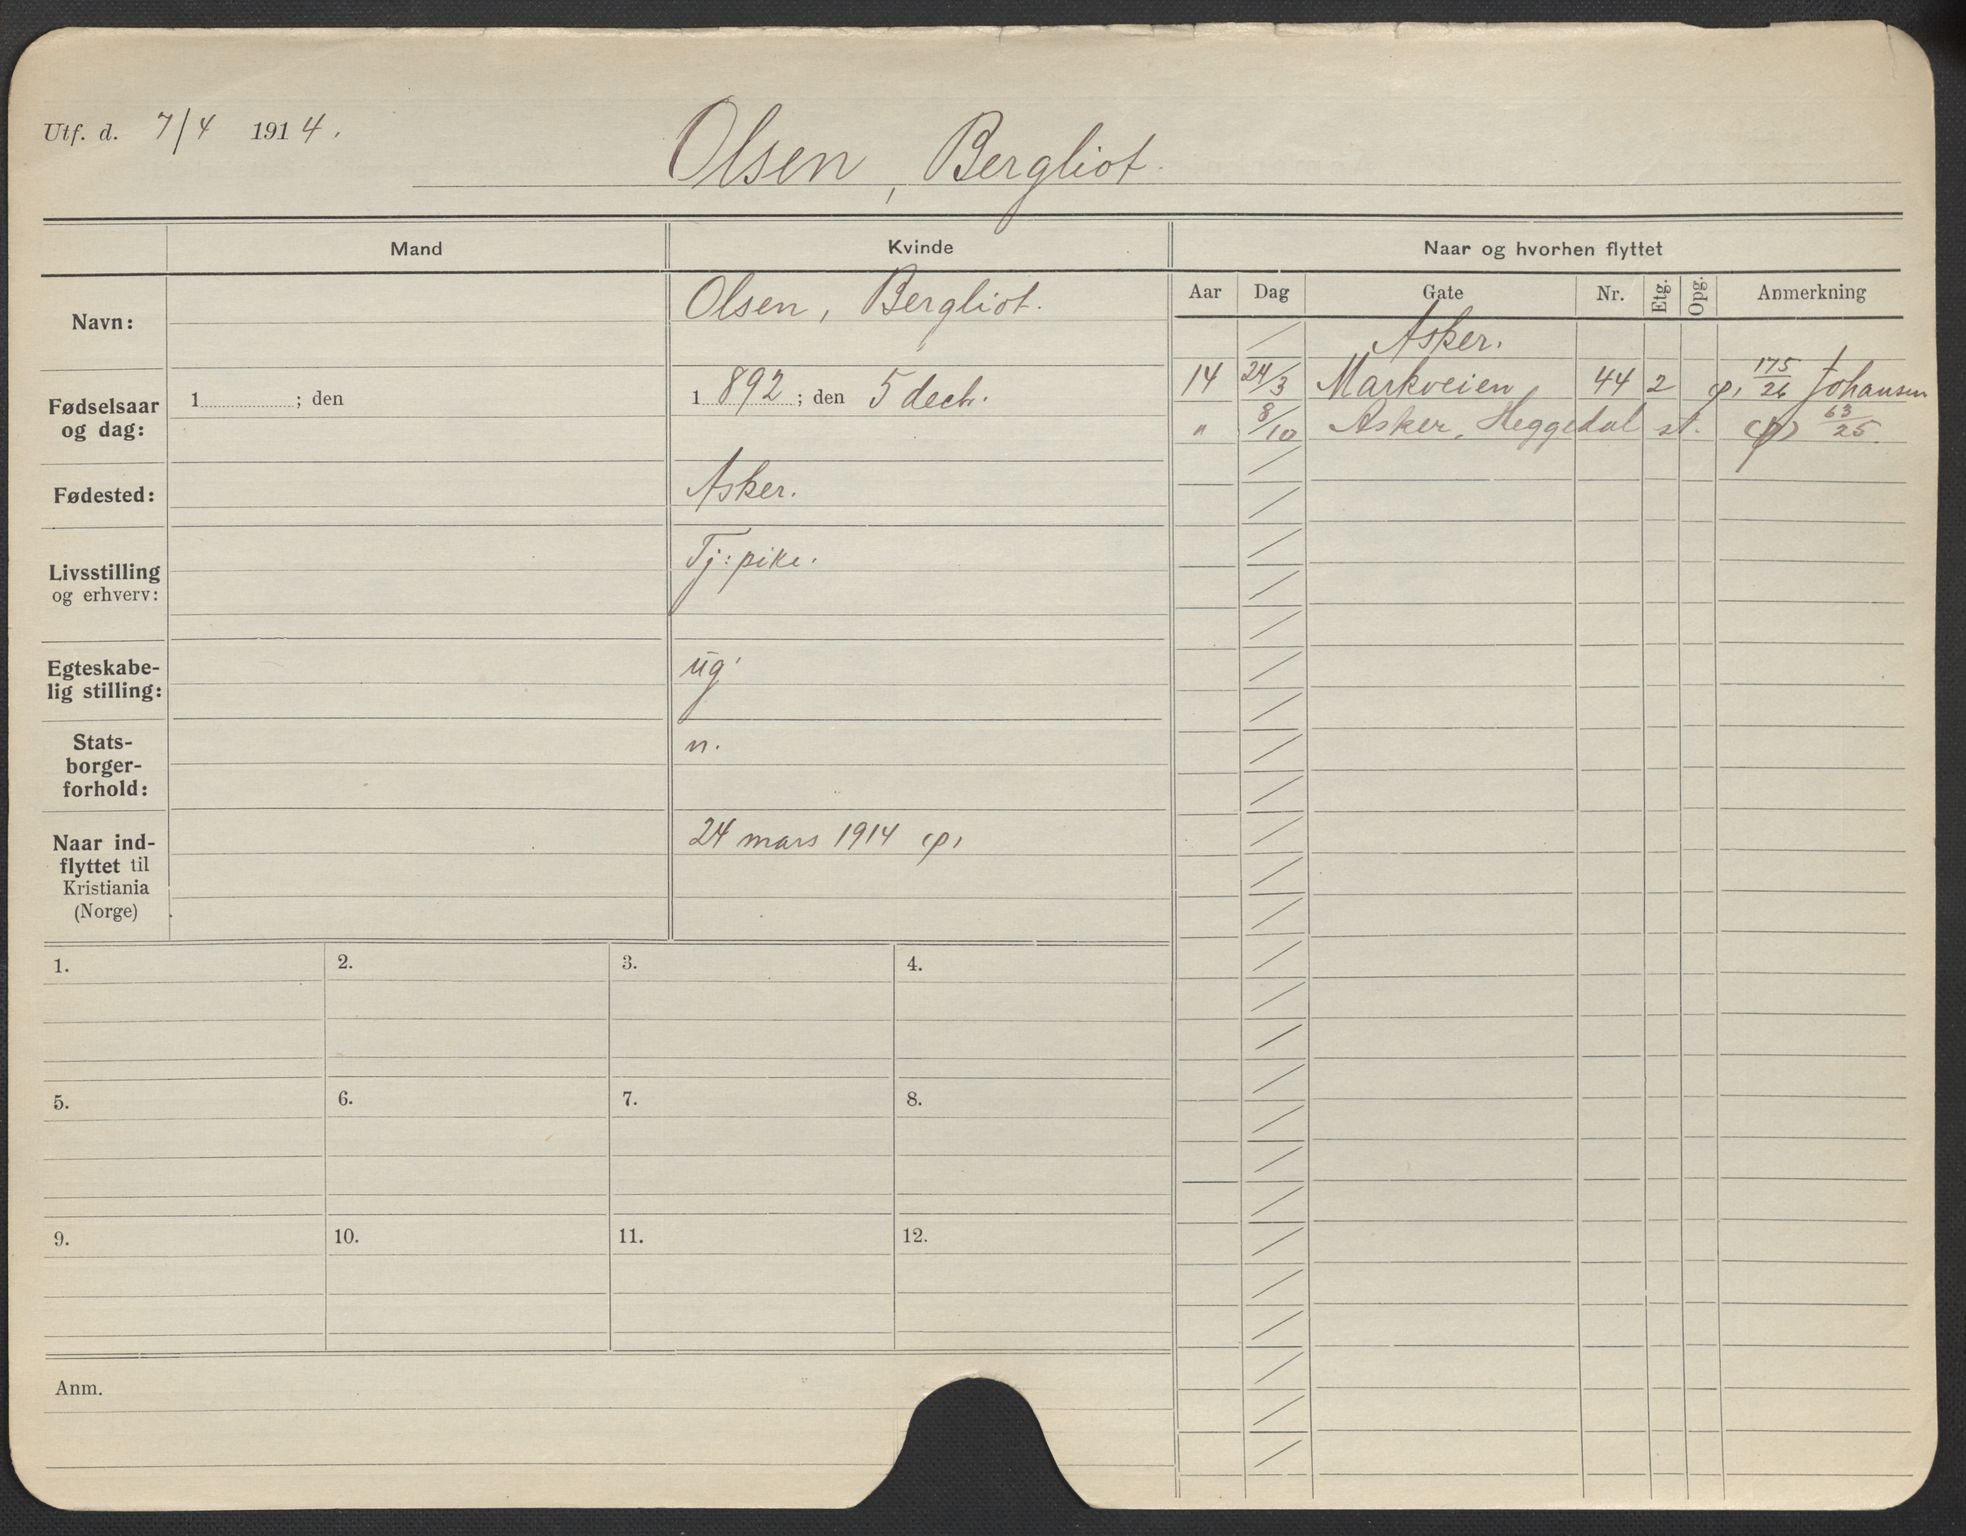 Utf. d. 7/4 1914.
Olsen, Bergliot.
Mand
Kvinde
Naar og hvorhen flyttet
Aar Dag Gate Nr. Etg. Opg. Anmerkning
Navn:
Olsen, Bergliot.
Asker.
14 24/3 Markveien 44 2 175/26 Johansen
" 8/10 Asker, Heggedal st. (p) 63/25.
Fødselsaar
og dag:
1 ; den
1 892 ; den 5 decbr.
Fødested:
Asker.
Livsstilling
og erhverv:
Tj: pike.
Egteskabe-
lig stilling:
ug.
Stats-
borger-
forhold:
n.
Naar ind-
flyttet til
Kristiania
(Norge)
24 mars 1914 (p)
1. 2. 3. 4.
5. 6. 7. 8.
9. 10. 11. 12.
Anm.